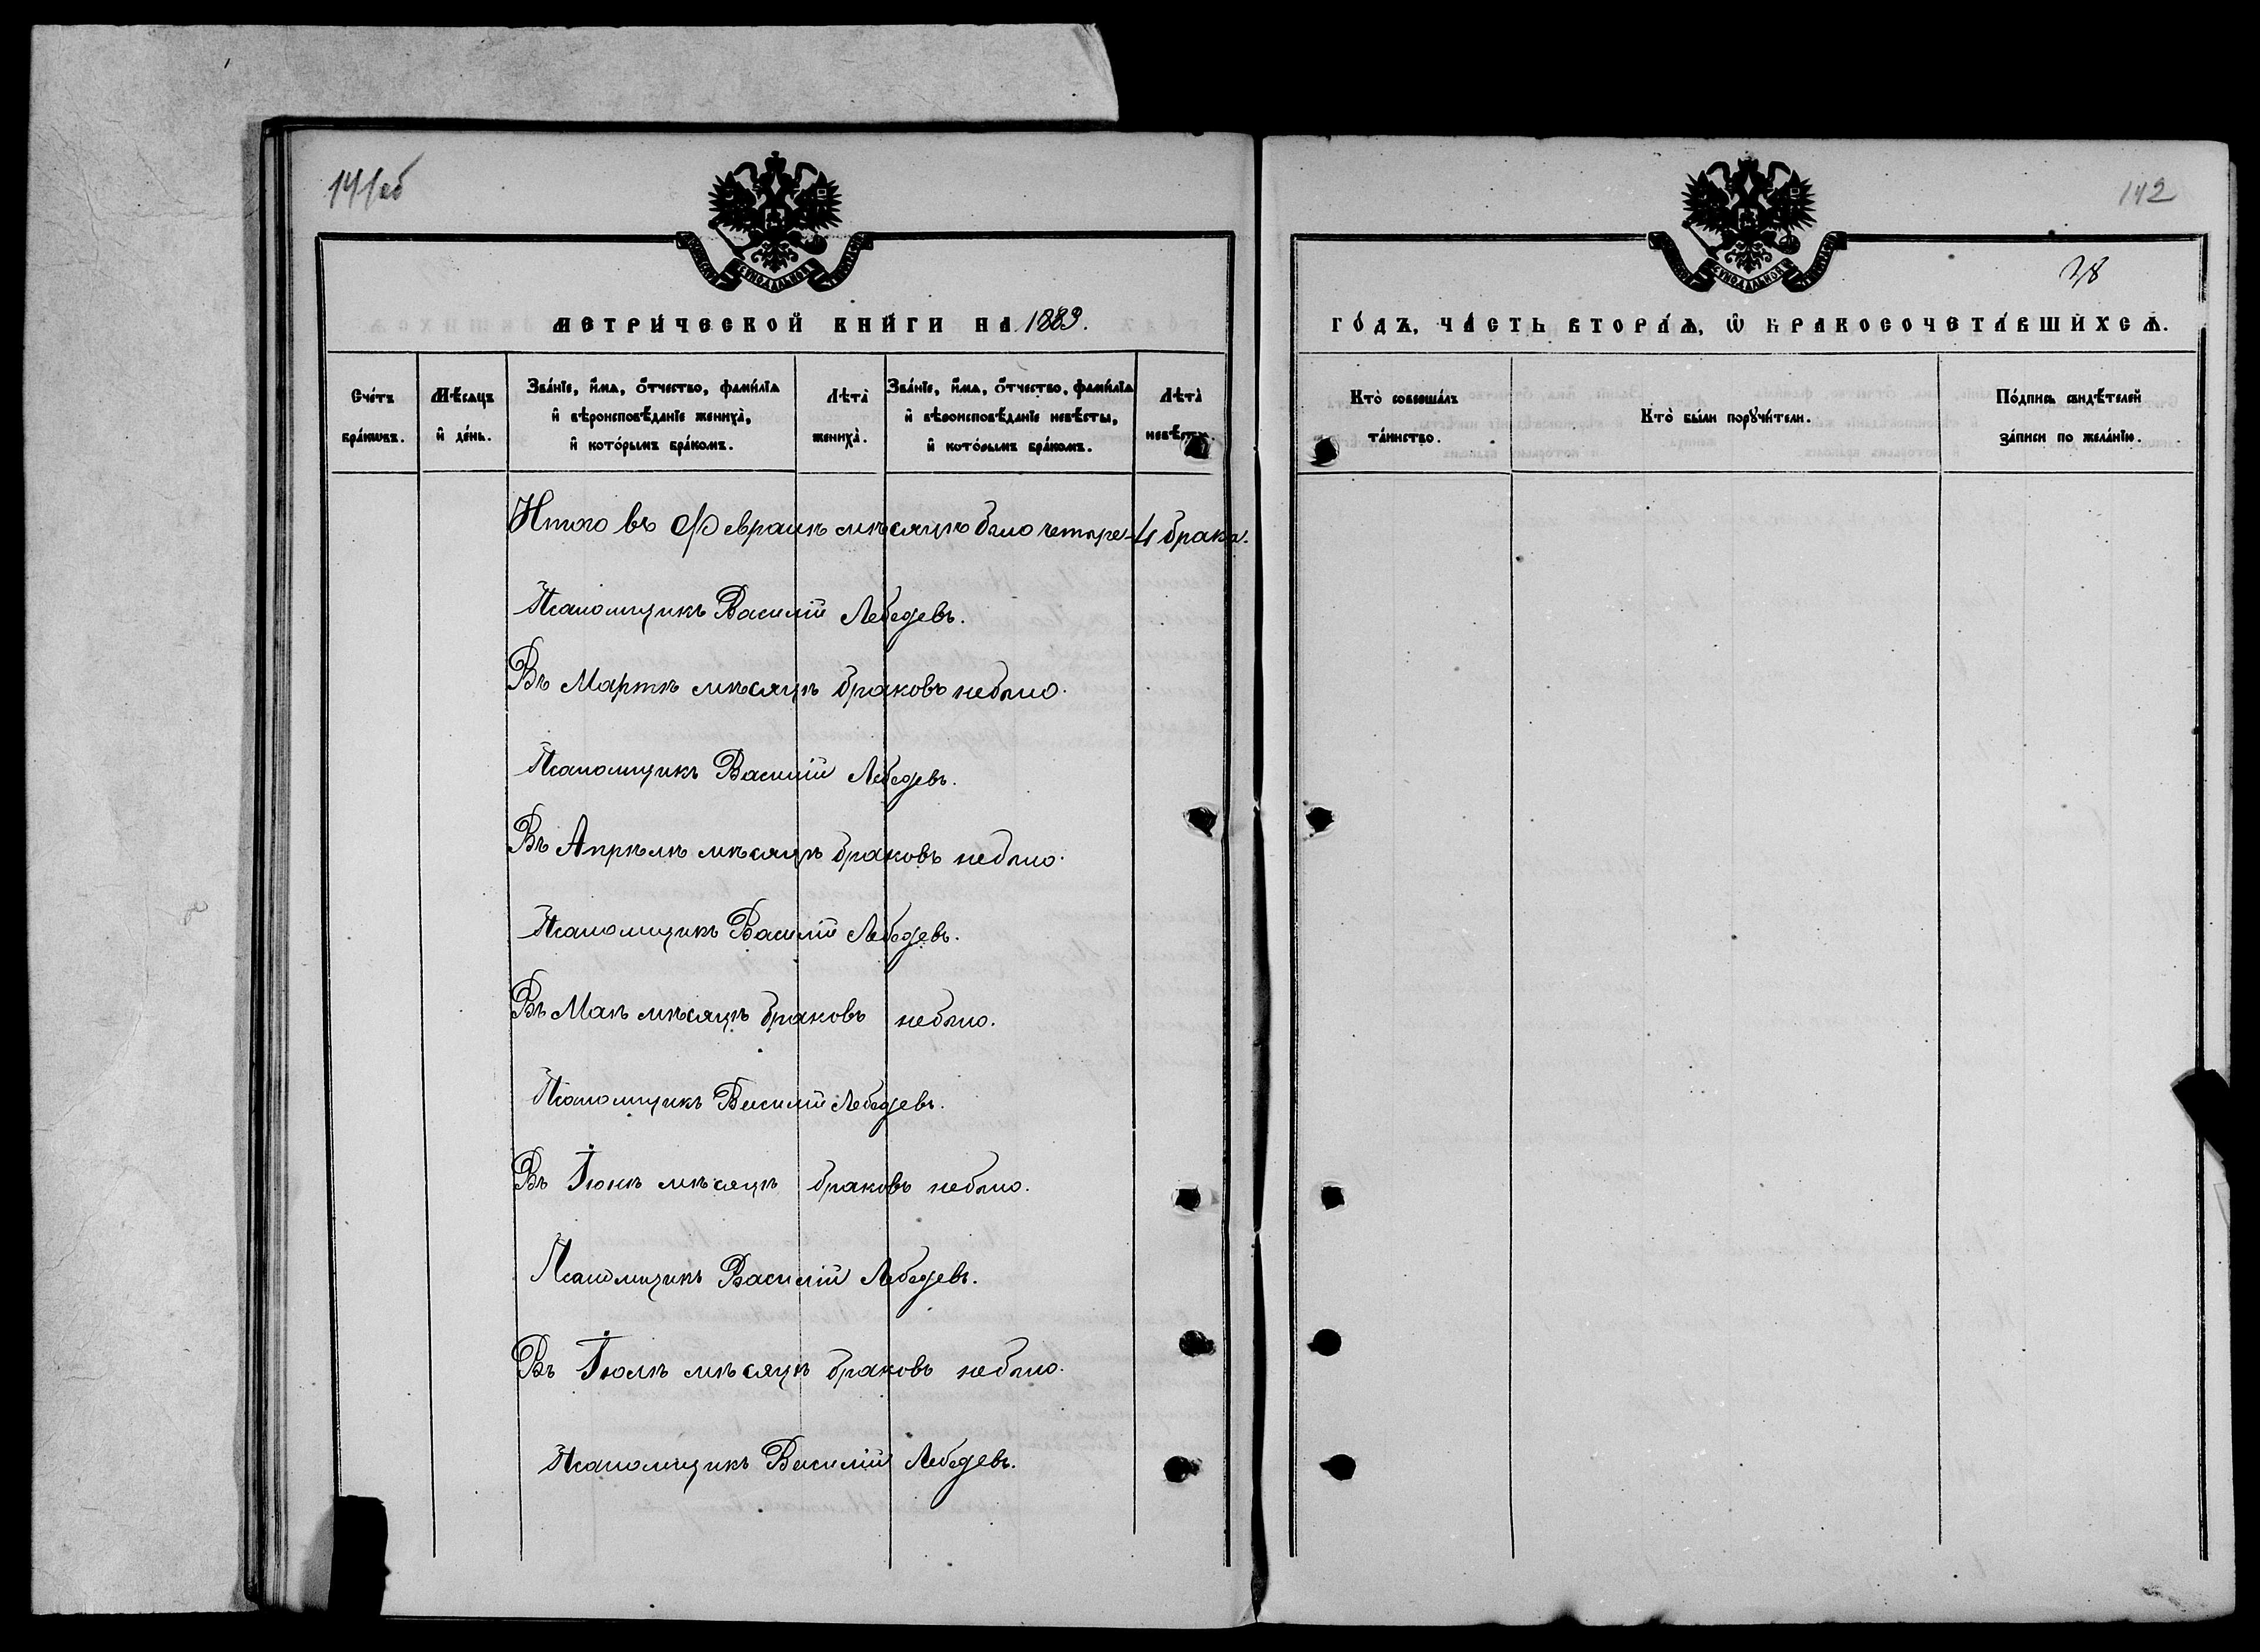 141об
МЕТРИ́ЧЕСКОЙ КНИ́ГИ НА 1883.
Сче́тъ бра́кѡвъ.
Мѣ́сяцъ и҆ де́нь.
Зва́нїе, и҆́мя, ѻ҆́тчество, фами́лїя и҆ вѣроисповѣ́данїе жениха̀, и҆ кото́рымъ бра́комъ.
Лѣта̀ жениха̀.
Зва́нїе, и҆́мя, ѻ҆́тчество, фами́лїя и҆ вѣроисповѣ́данїе невѣ́сты, и҆ кото́рымъ бра́комъ.
Лѣта̀ невѣ́сты.
Итого въ Февралѣ мѣсяцѣ было четыре-4 брака.
Псаломщикъ Василій Лебедевъ.
Въ Мартѣ мѣсяцѣ браковъ небыло.
Псаломщикъ Василій Лебедевъ.
Въ Апрѣлѣ мѣсяцѣ браковъ небыло.
Псаломщикъ Василій Лебедевъ.
Въ Маѣ мѣсяцѣ браковъ небыло.
Псаломщикъ Василій Лебедевъ.
Въ Іюнѣ мѣсяцѣ браковъ небыло.
Псаломщикъ Василій Лебедевъ.
Въ Іюлѣ мѣсяцѣ браковъ небыло.
Псаломщикъ Василій Лебедевъ.
142
38
ГО́ДЪ, ЧА́СТЬ ВТОРА́Ѧ, Ѡ҆ БРАКОСОЧЕТА́ВШИХСѦ.
Кто̀ соверша́лъ та́инство.
Кто̀ бы́ли порꙋчи́тели.
По́дпись свидѣ́телей за́писи по жела́нїю.